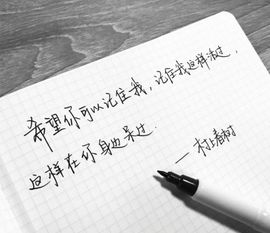 希望你可以记住我，记住我这样活过，
这样在你身边呆过.
—村上春树